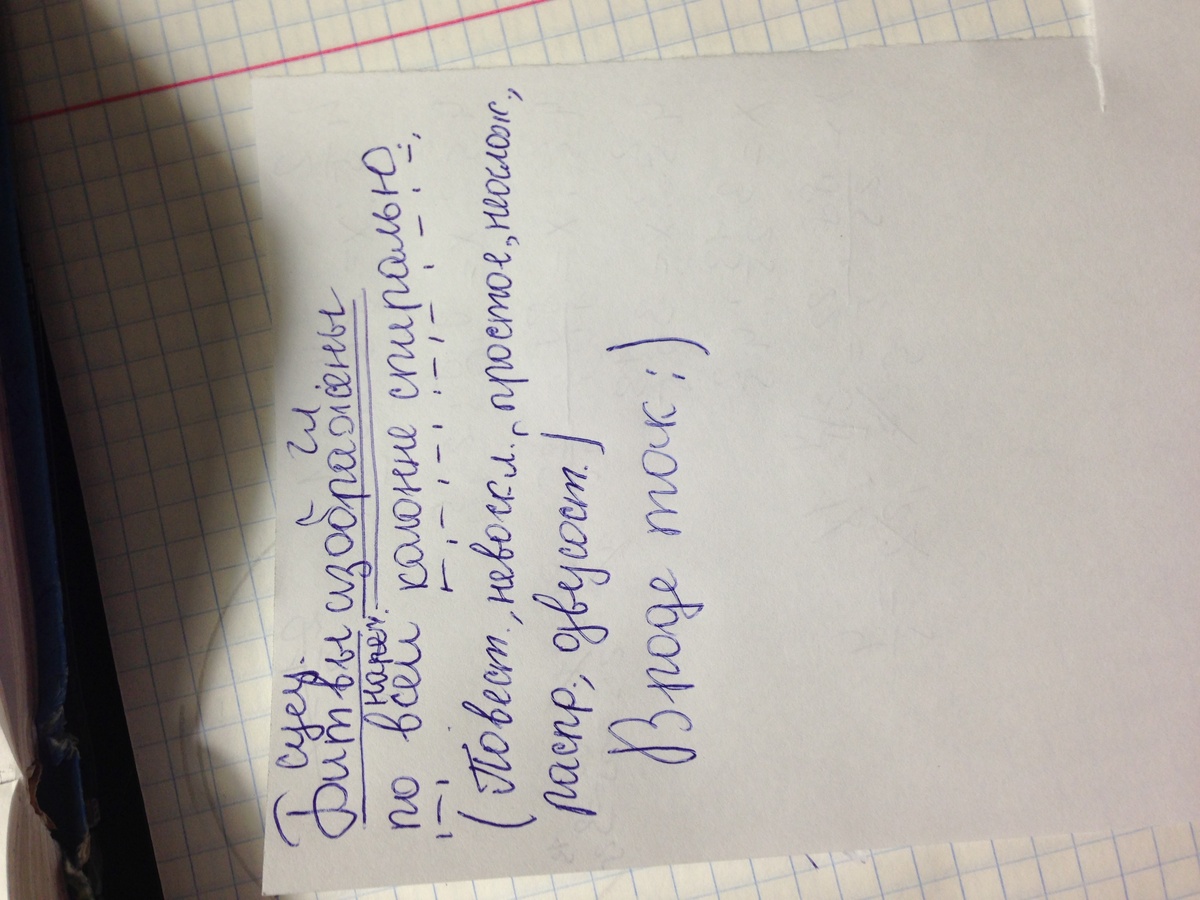 сущ. гл
Битвы изображены
нареч.
по всей колонне спиралью
(Повест., невоскл., простое, неослож,
распр., двусост.)
Вроде так ;)